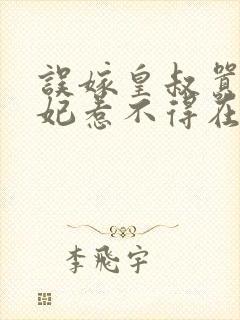 誤嫁皇叔
妃惹不得在
李飛宇